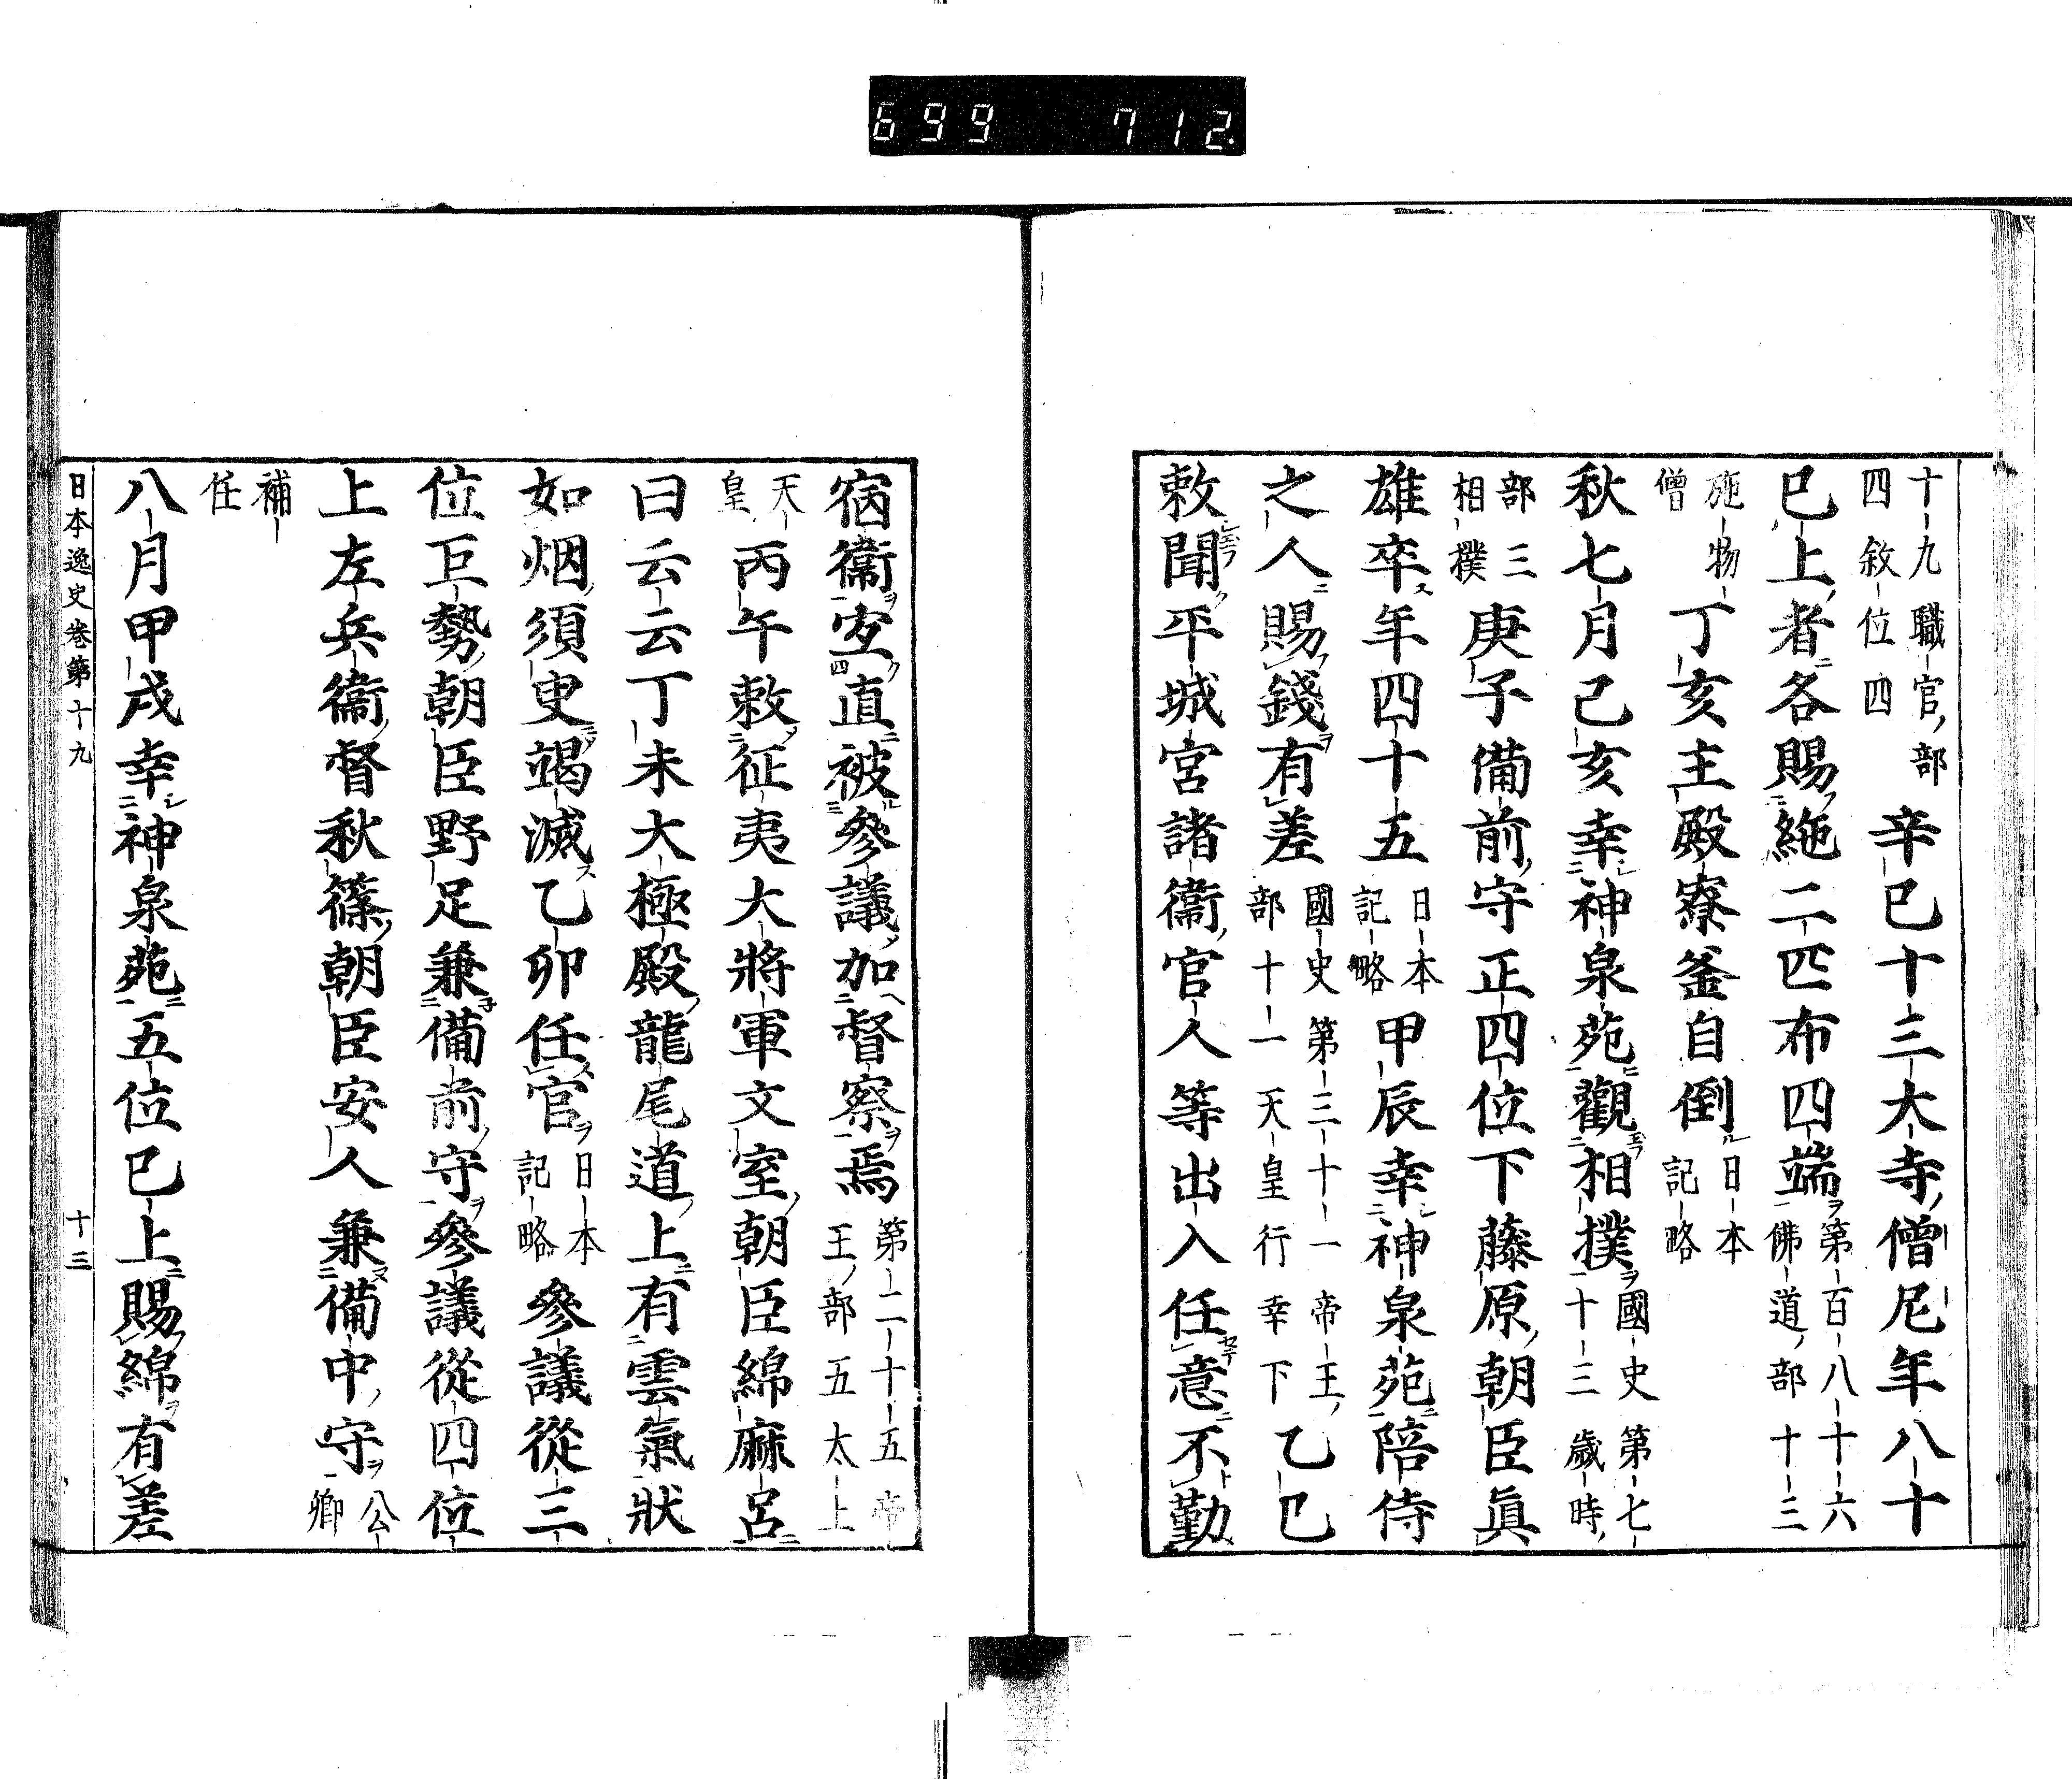 699 712.
十九職官部
四敘位四
辛巳十三大寺僧尼年八十
巳上者各賜絁二匹布四端
第百八十六
佛道部十三
施物
僧
丁亥主殿寮釜自倒
日本
記略
秋七月己亥幸神泉苑觀相撲
國史第七
十三歲時
部三
相撲
庚子備前守正四位下藤原朝臣眞
雄卒年四十五
日本
記略
甲辰幸神泉苑陪侍
之人賜錢有差
國史第三十一帝王
部十一天皇行幸下
乙巳
敕聞平城宮諸衞官人等出入任意不勤
宿衞宜直被參議加督察焉
第二十五帝
王部五太上
天
皇
丙午敕征夷大將軍文室朝臣綿麻呂
曰云云丁未大極殿龍尾道上有雲氣狀
如烟須臾竭滅乙卯任官
日本
記略
參議從三
位巨勢朝臣野足兼備前守參議從四位
上左兵衞督秋篠朝臣安人兼備中守
公
卿
補
任
八月甲戌幸神泉苑五位巳上賜綿有差
日本逸史卷第十九 十三